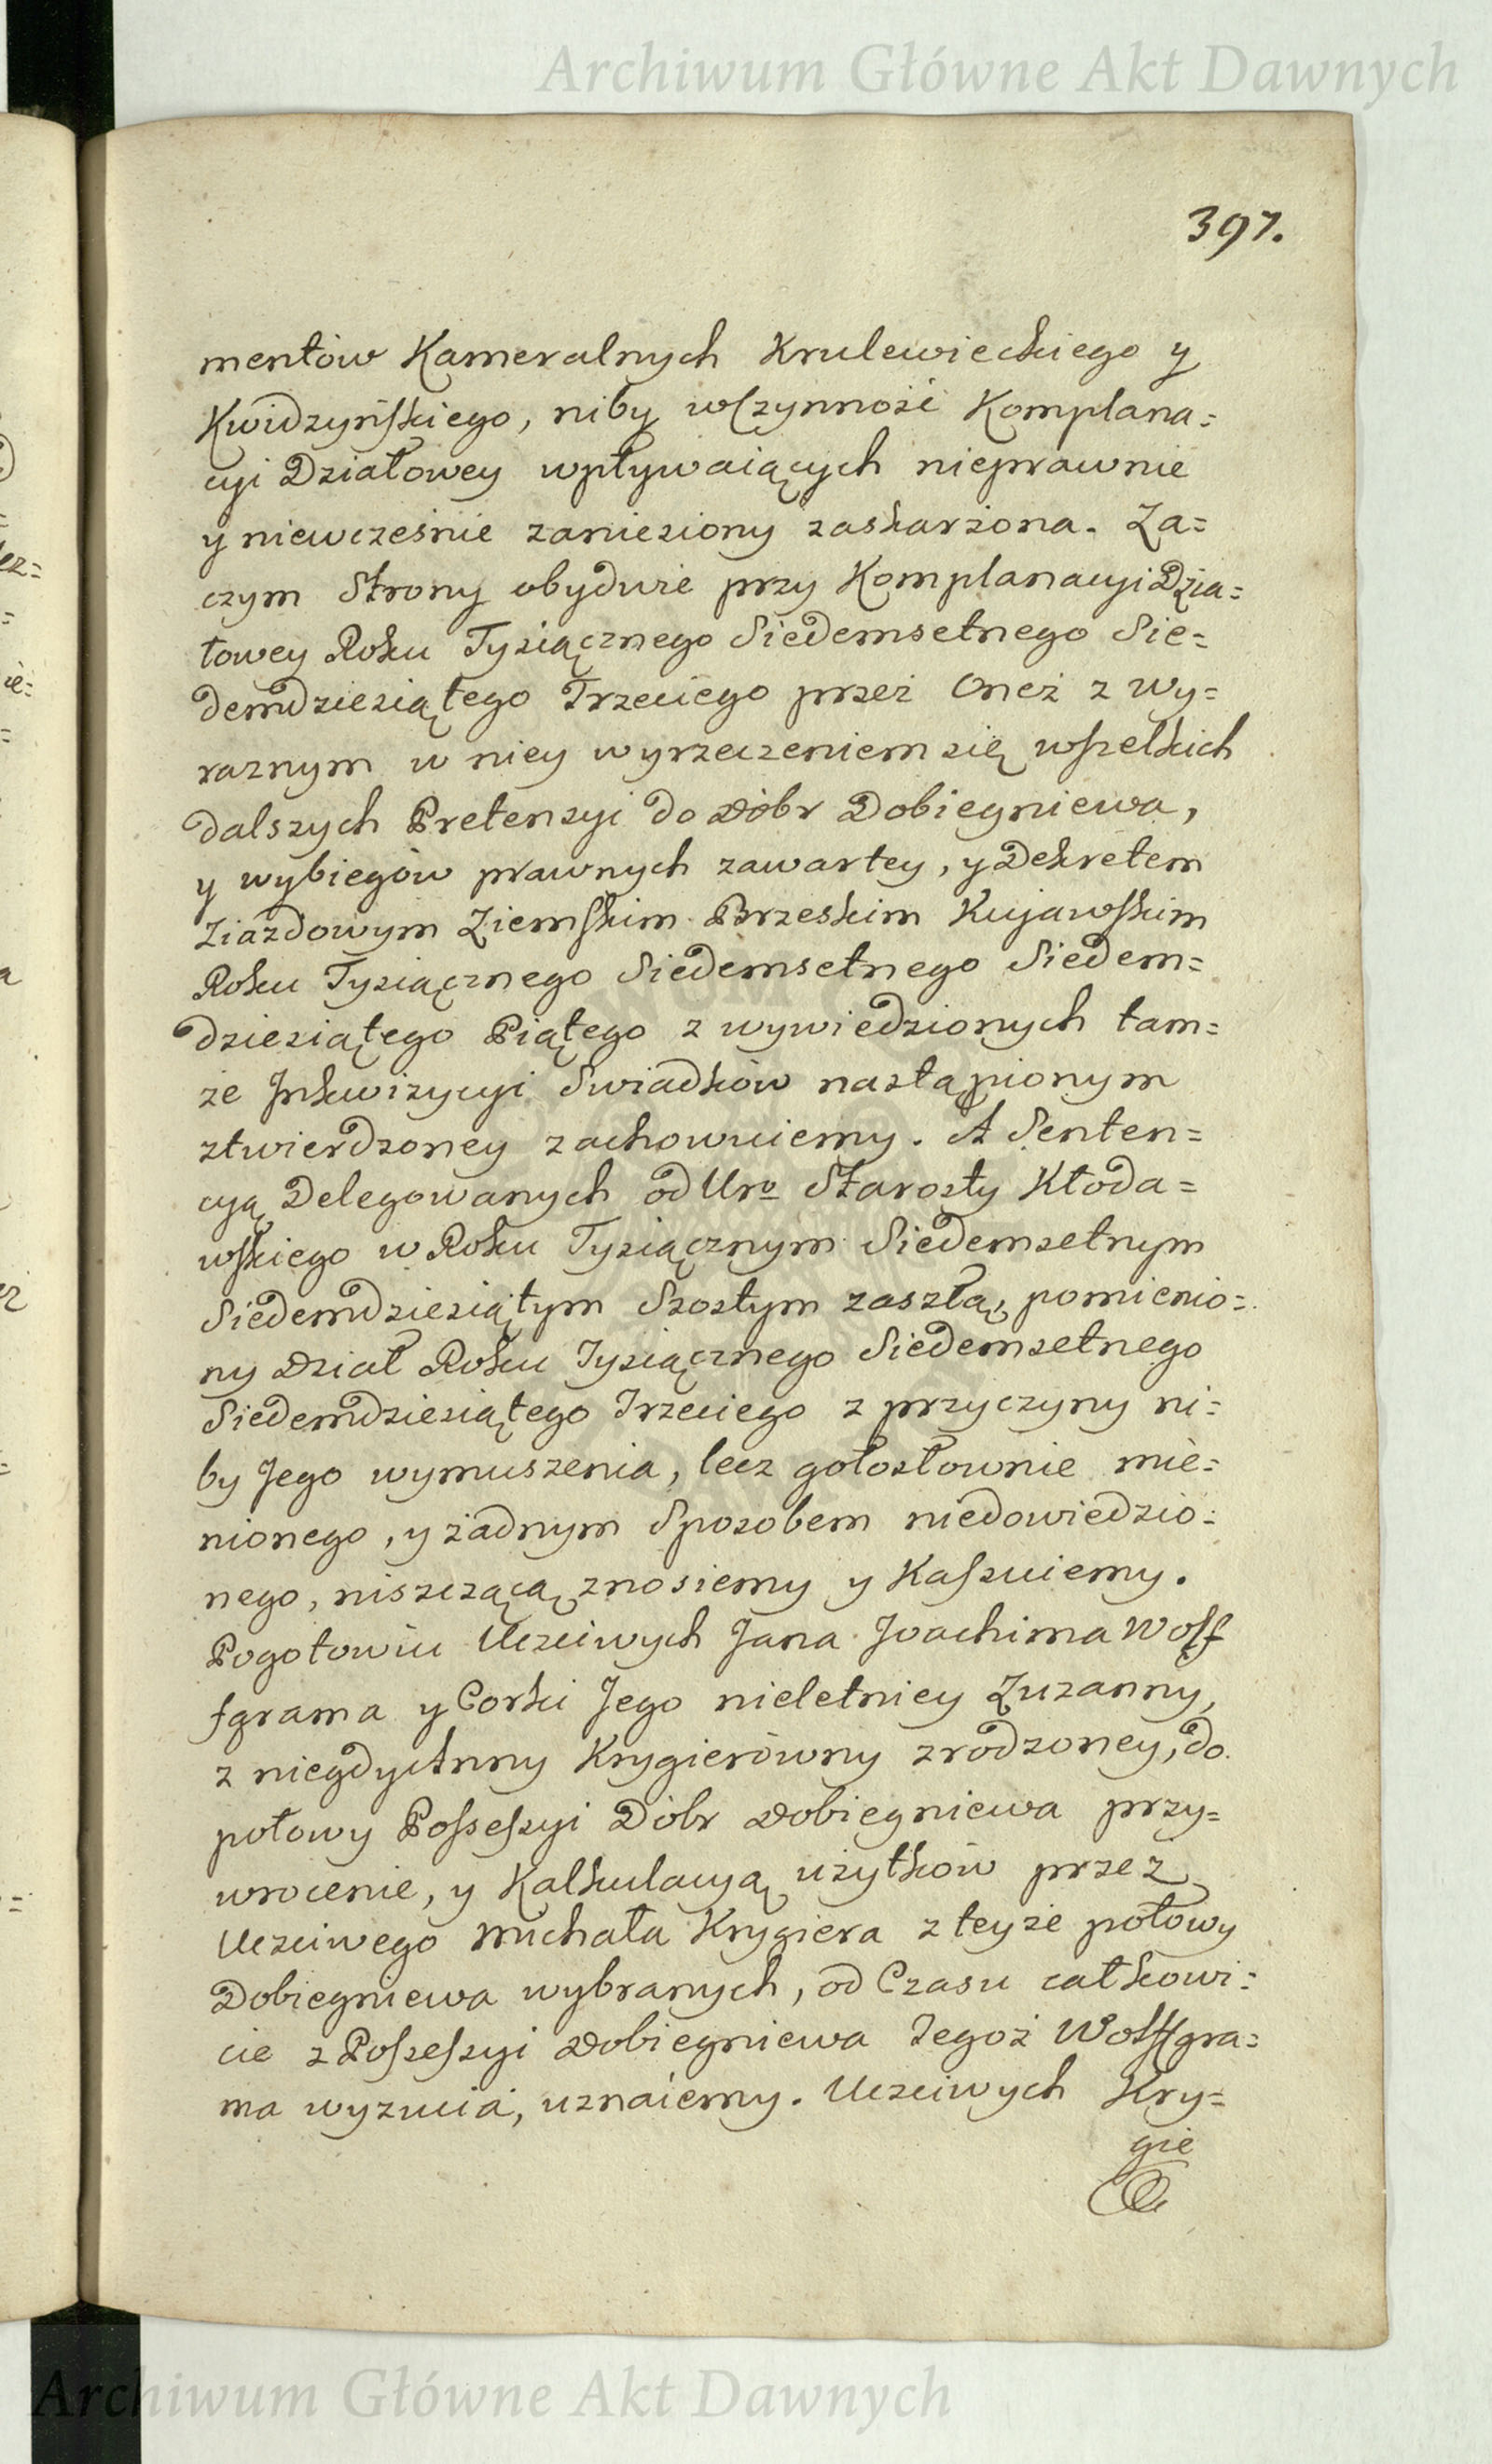 Archiwum Główne Akt Dawnych
397.
mentów Kameralnych Krulewieckiego y
Kwidzyńskiego, niby w czynność Komplana=
cyi Działowey wpływaiących nieprawnie
y niewcześnie zaniesiony zaskarżona. Za=
czym Strony obydwie przy Komplanacyi Dzia=
łowey Roku Tysiącznego Siedemsetnego Sie=
demdziesiątego Trzeciego przez Oneż z wy=
raznym w niey wyrzeczeniem się wszelkich
dalszych Pretensyi do Dóbr Dobiegniewa,
y wybiegów prawnych zawartey, y Dekretem
Ziazdowym Ziemskim Brzeskim Kujawskim
Roku Tysiącznego Siedemsetnego Siedem=
dziesiątego Piątego z wywiedzionych tam=
że Inkwizycyi Swiadków nastąpionym
ztwierdzoney zachowuiemy. A Senten=
cyą Delegowanych od Uro Starosty Kłoda=
wskiego w Roku Tysiącznym Siedemsetnym
Siedemdziesiątym Szostym zaszłą, pomienio=
ny Dział Roku Tysiącznego Siedemsetnego
Siedemdziesiątego Trzeciego z przyczyny ni=
by Jego wymuszenia, lecz gołosłownie mie=
nionego, y żadnym Sposobem niedowiedzio=
nego, niszczącą znosiemy y Kassuiemy.
Pogotowiu Uczciwych Jana Joachima Wolf
fgrama y Corki Jego nieletniey Zuzanny,
z niegdy Anny Krygierówny zrodzoney, do
połowy Possessyi Dóbr Dobiegniewa przy=
wrocenie, y Kalkulacyą użytków przez
Uczciwego Michała Krygiera z teyże połowy
Dobiegniewa wybranych, od Czasu całkowi=
cie z Possessyi Dobiegniewa Jegoż Wolffgra=
ma wyzucia, uznaiemy. Uczciwych Kry=
gie
Archiwum Główne Akt Dawnych